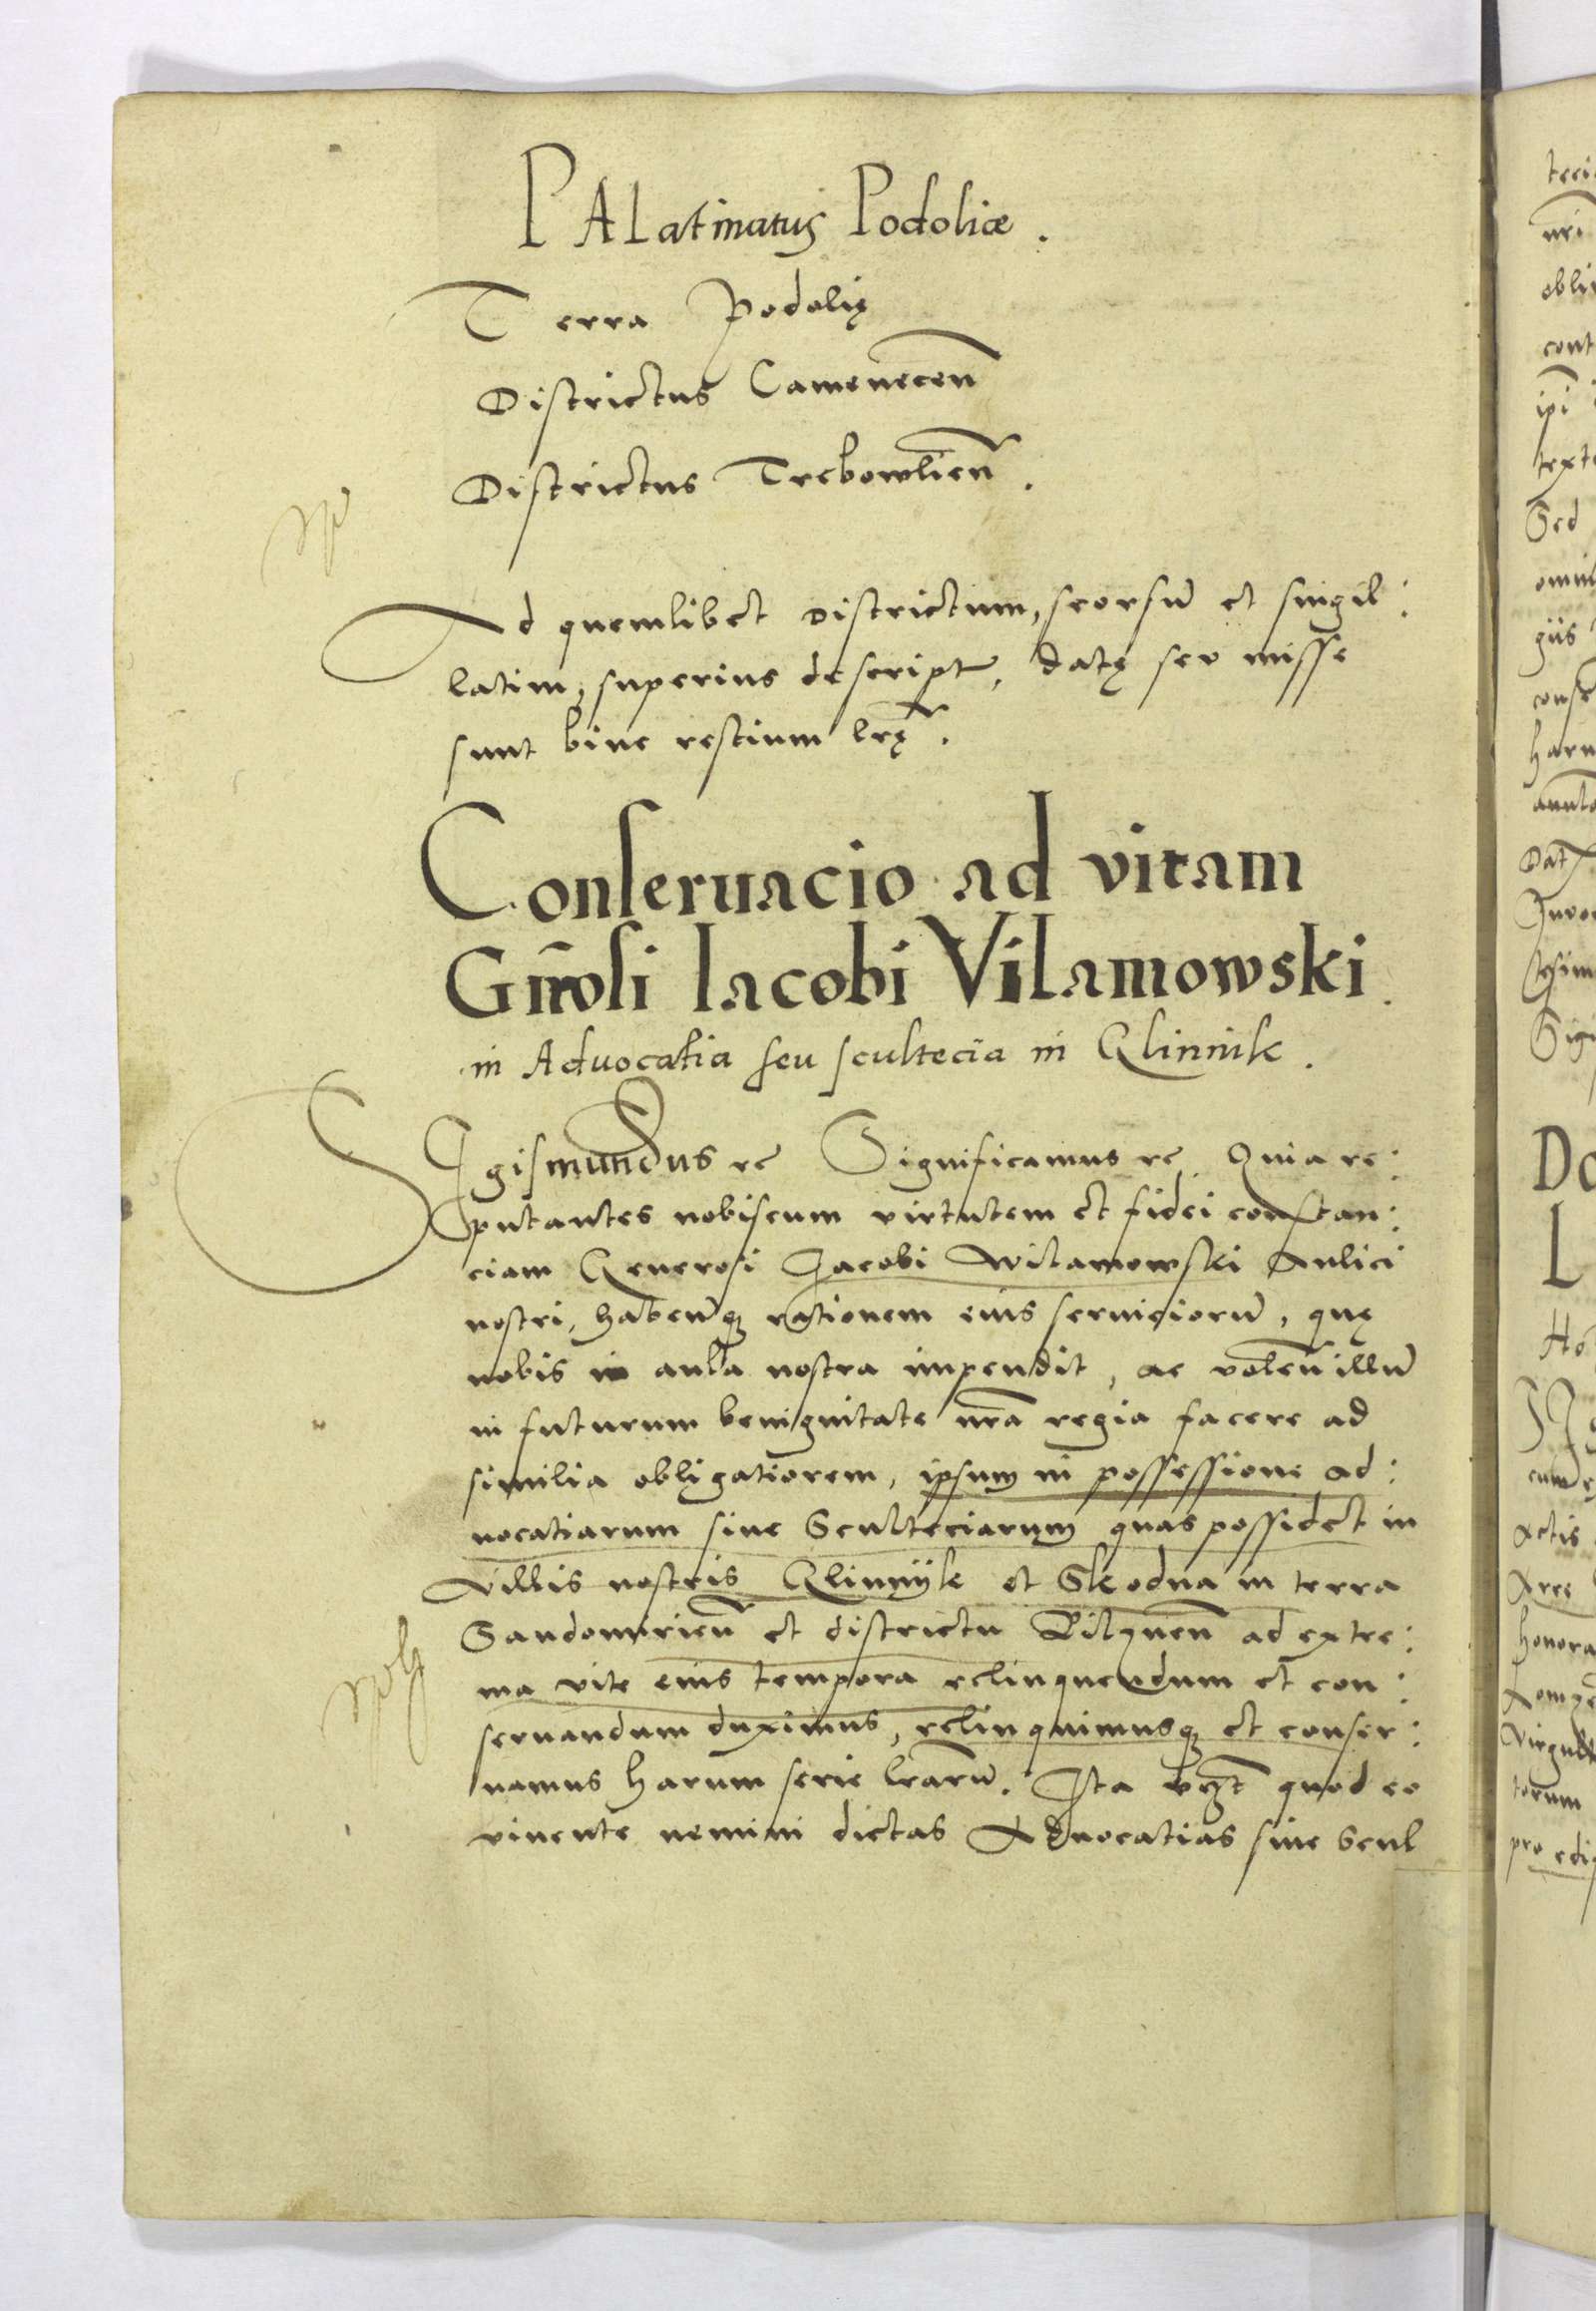 PALatinatus Podoliæ.
Terra Podolię
Districtus Camenecen̄
Districtus Trebowlien̄.
Ad quemlibet Districtum, seorsū et singil:
latim, superius descript, datę seu misse
sunt bine restium lrę̄.
Conseruacio ad vitam
Gn̄rosi Iacobi Vilamowski.
in Aduocatia seu scultecia in Glinnik.
SIgismundus rc Significamus rc. Quia re:
putantes nobiscum virtutem et fidei constan:
ciam Generosi Jacobi Wilamowski Aulici
nostri, haben̄q; rationem eius seruiciorū, quę
nobis in aula nostra impendit, ac volen̄ illū
in futurum benignitate nr̄a regia facere ad
similia obligatiorem, ipsum in possessione ad:
uocatiarum siue Sculteciarum quas possidet in
Villis nostris Glinnyk et Skodna in terra
Sandomirien̄ et districtu Pilznen̄ ad extre:
ma vite eius tempora relinquendum et con:
seruandum duximus, relinquimusq; et conser:
uamus harum serie lrarū. Ita vt quod eo
viuente nemini dictas Aduocatias siue Scul